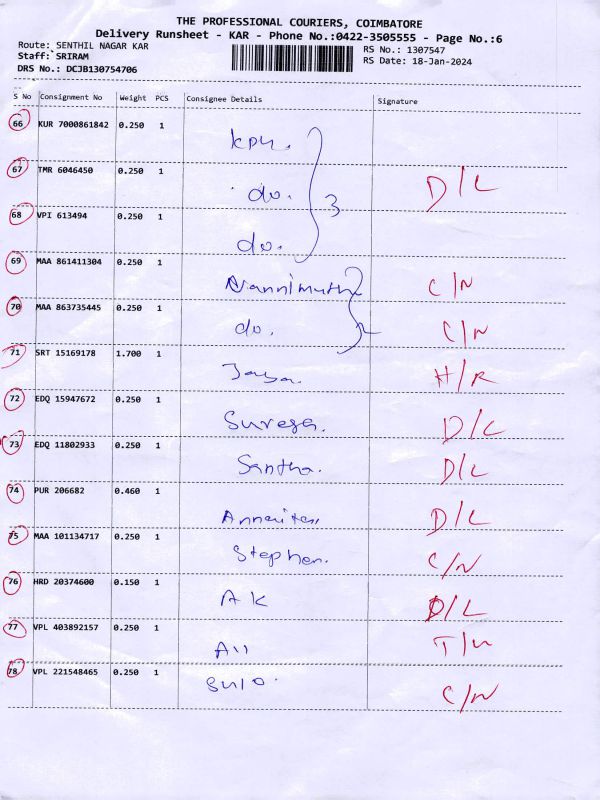 THE PROFESSIONAL COURIERS, COIMBATORE
Delivery Runsheet - KAR - Phone No.:0422-3505555 - Page No.:6
Route: SENTHIL NAGAR KAR RS No.: 1307547
Staff: SRIRAM RS Date: 18-Jan-2024
DRS No.: DCJB130754706
S No Consignment No Weight PCS Consignee Details Signature
66 KUR 7000861842 0.250 1
67 TMR 6046450 0.250 1 do. 3 D/L
68 VPI 613494 0.250 1 do.
69 MAA 861411304 0.250 1 C/N
70 MAA 863735445 0.250 1 do. 2 C/N
71 SRT 15169178 1.700 1 H/R
72 EDQ 15947672 0.250 1 D/L
73 EDQ 11802933 0.250 1 Santha. D/L
74 PUR 206682 0.460 1 D/L
75 MAA 101134717 0.250 1 Stephen. C/N
76 HRD 20374600 0.150 1 AK D/L
77 VPL 403892157 0.250 1
78 VPL 221548465 0.250 1 C/N